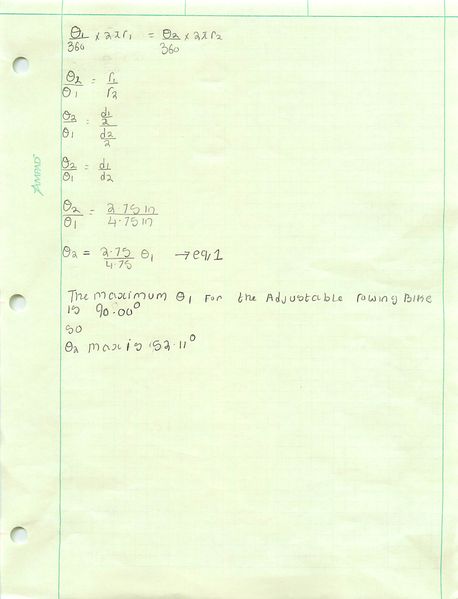 θ1/360 × 2πr1 = θ2/360 × 2πr2
θ2/θ1 = r1/r2
θ2/θ1 = (d1/2)/(d2/2)
θ2/θ1 = d1/d2
AMPAD
θ2/θ1 = 2.75 in/4.75 in
θ2 = 2.75/4.75 θ1 → eq,1
The maximum θ1 for the Adjustable rowing Bike
is 90.00°
so
θ2 max is 52.11°